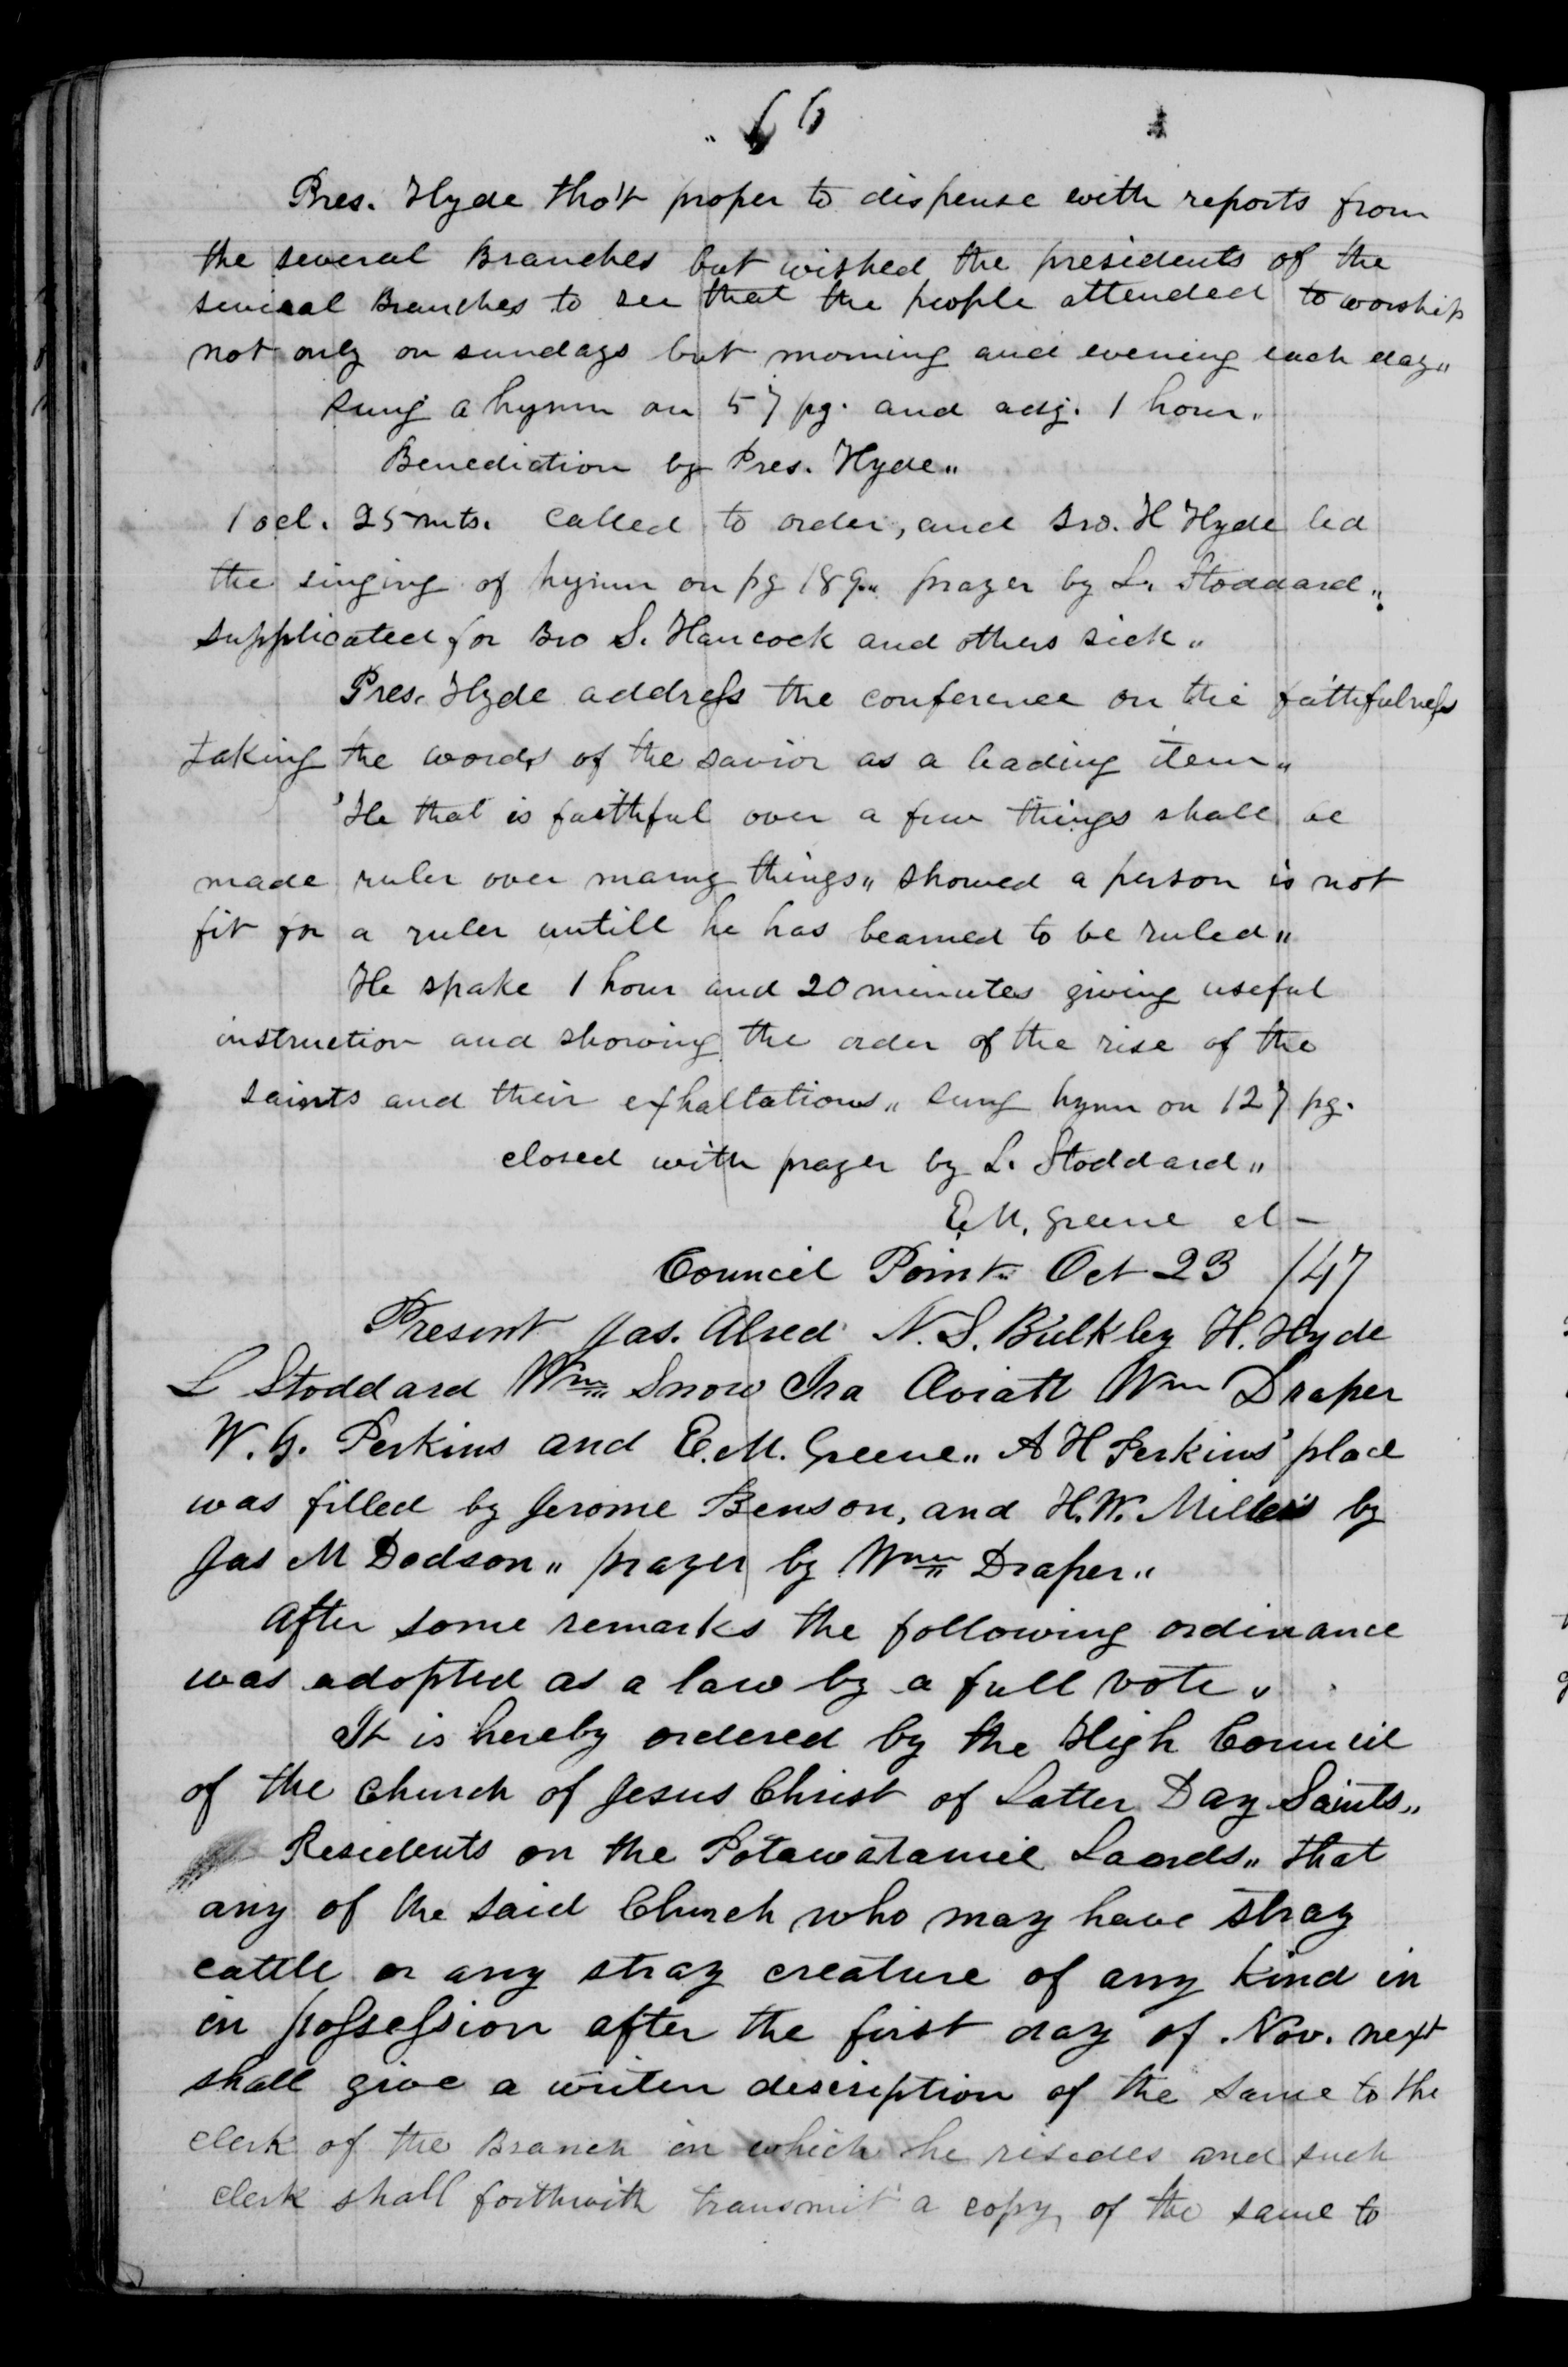 66
Pres. Hyde tho't proper to dispense with reports from
the several Branches but wished the presidents of the
several Branches to see that the people attended to worship
not only on sundays but morning and evening each day„
sung a hymn on 57 pg. and adj. 1 hour„
Benediction by Pres. Hyde„
1 ocl. 25 mts. called to order, and Bro. H Hyde led
the singing of hymn on pg 189„ prayer by L. Stoddard„
supplicated for Bro S. Hancock and others sick„
Pres. Hyde address the conference on the faithfulness
taking the words of the savior as a leading item„
'He that is faithful over a few things shall be
made ruler over many things„ showed a person is not
fit for a ruler untill he has learned to be ruled„
He spake 1 hour and 20 minutes giving useful
instruction and showing the order of the rise of the
saints and their exhaltations„ sung hymn on 127 pg.
closed with prayer by L. Stoddard„
E. M. Greene cl -
Council Point Oct 23 /47
Present Jas. Alred N. S. Bulkley H. Hyde
L Stoddard Wm Snow Ira Oviatt Wm Draper
W. G. Perkins and E. M. Greene„ A H Perkins' place
was filled by Jerome Benson, and H. W. Miller's by
Jas M Dodson„ prayer by Wm Draper„
After some remarks the following ordinance
was adopted as a law by a full vote„
It is hereby ordered by the High Council
of the church of Jesus Christ of Latter Day Saints„
Residents on the Potawatamie Lands„ that
any of the said Church who may have stray
cattle or any stray creature of any kind in
in possession after the first day of Nov. next
shall give a writen description of the same to the
clerk of the Branch in which he risedes and such
clerk shall forthwith transmit a copy of the same to